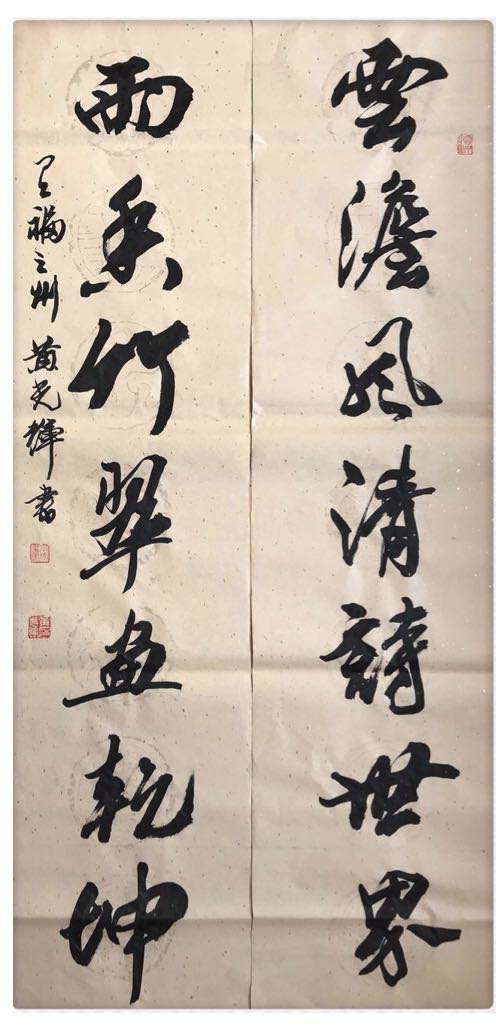 雲澹風清詩世界
雨香竹翠畫乾坤
有福之州黃光輝書